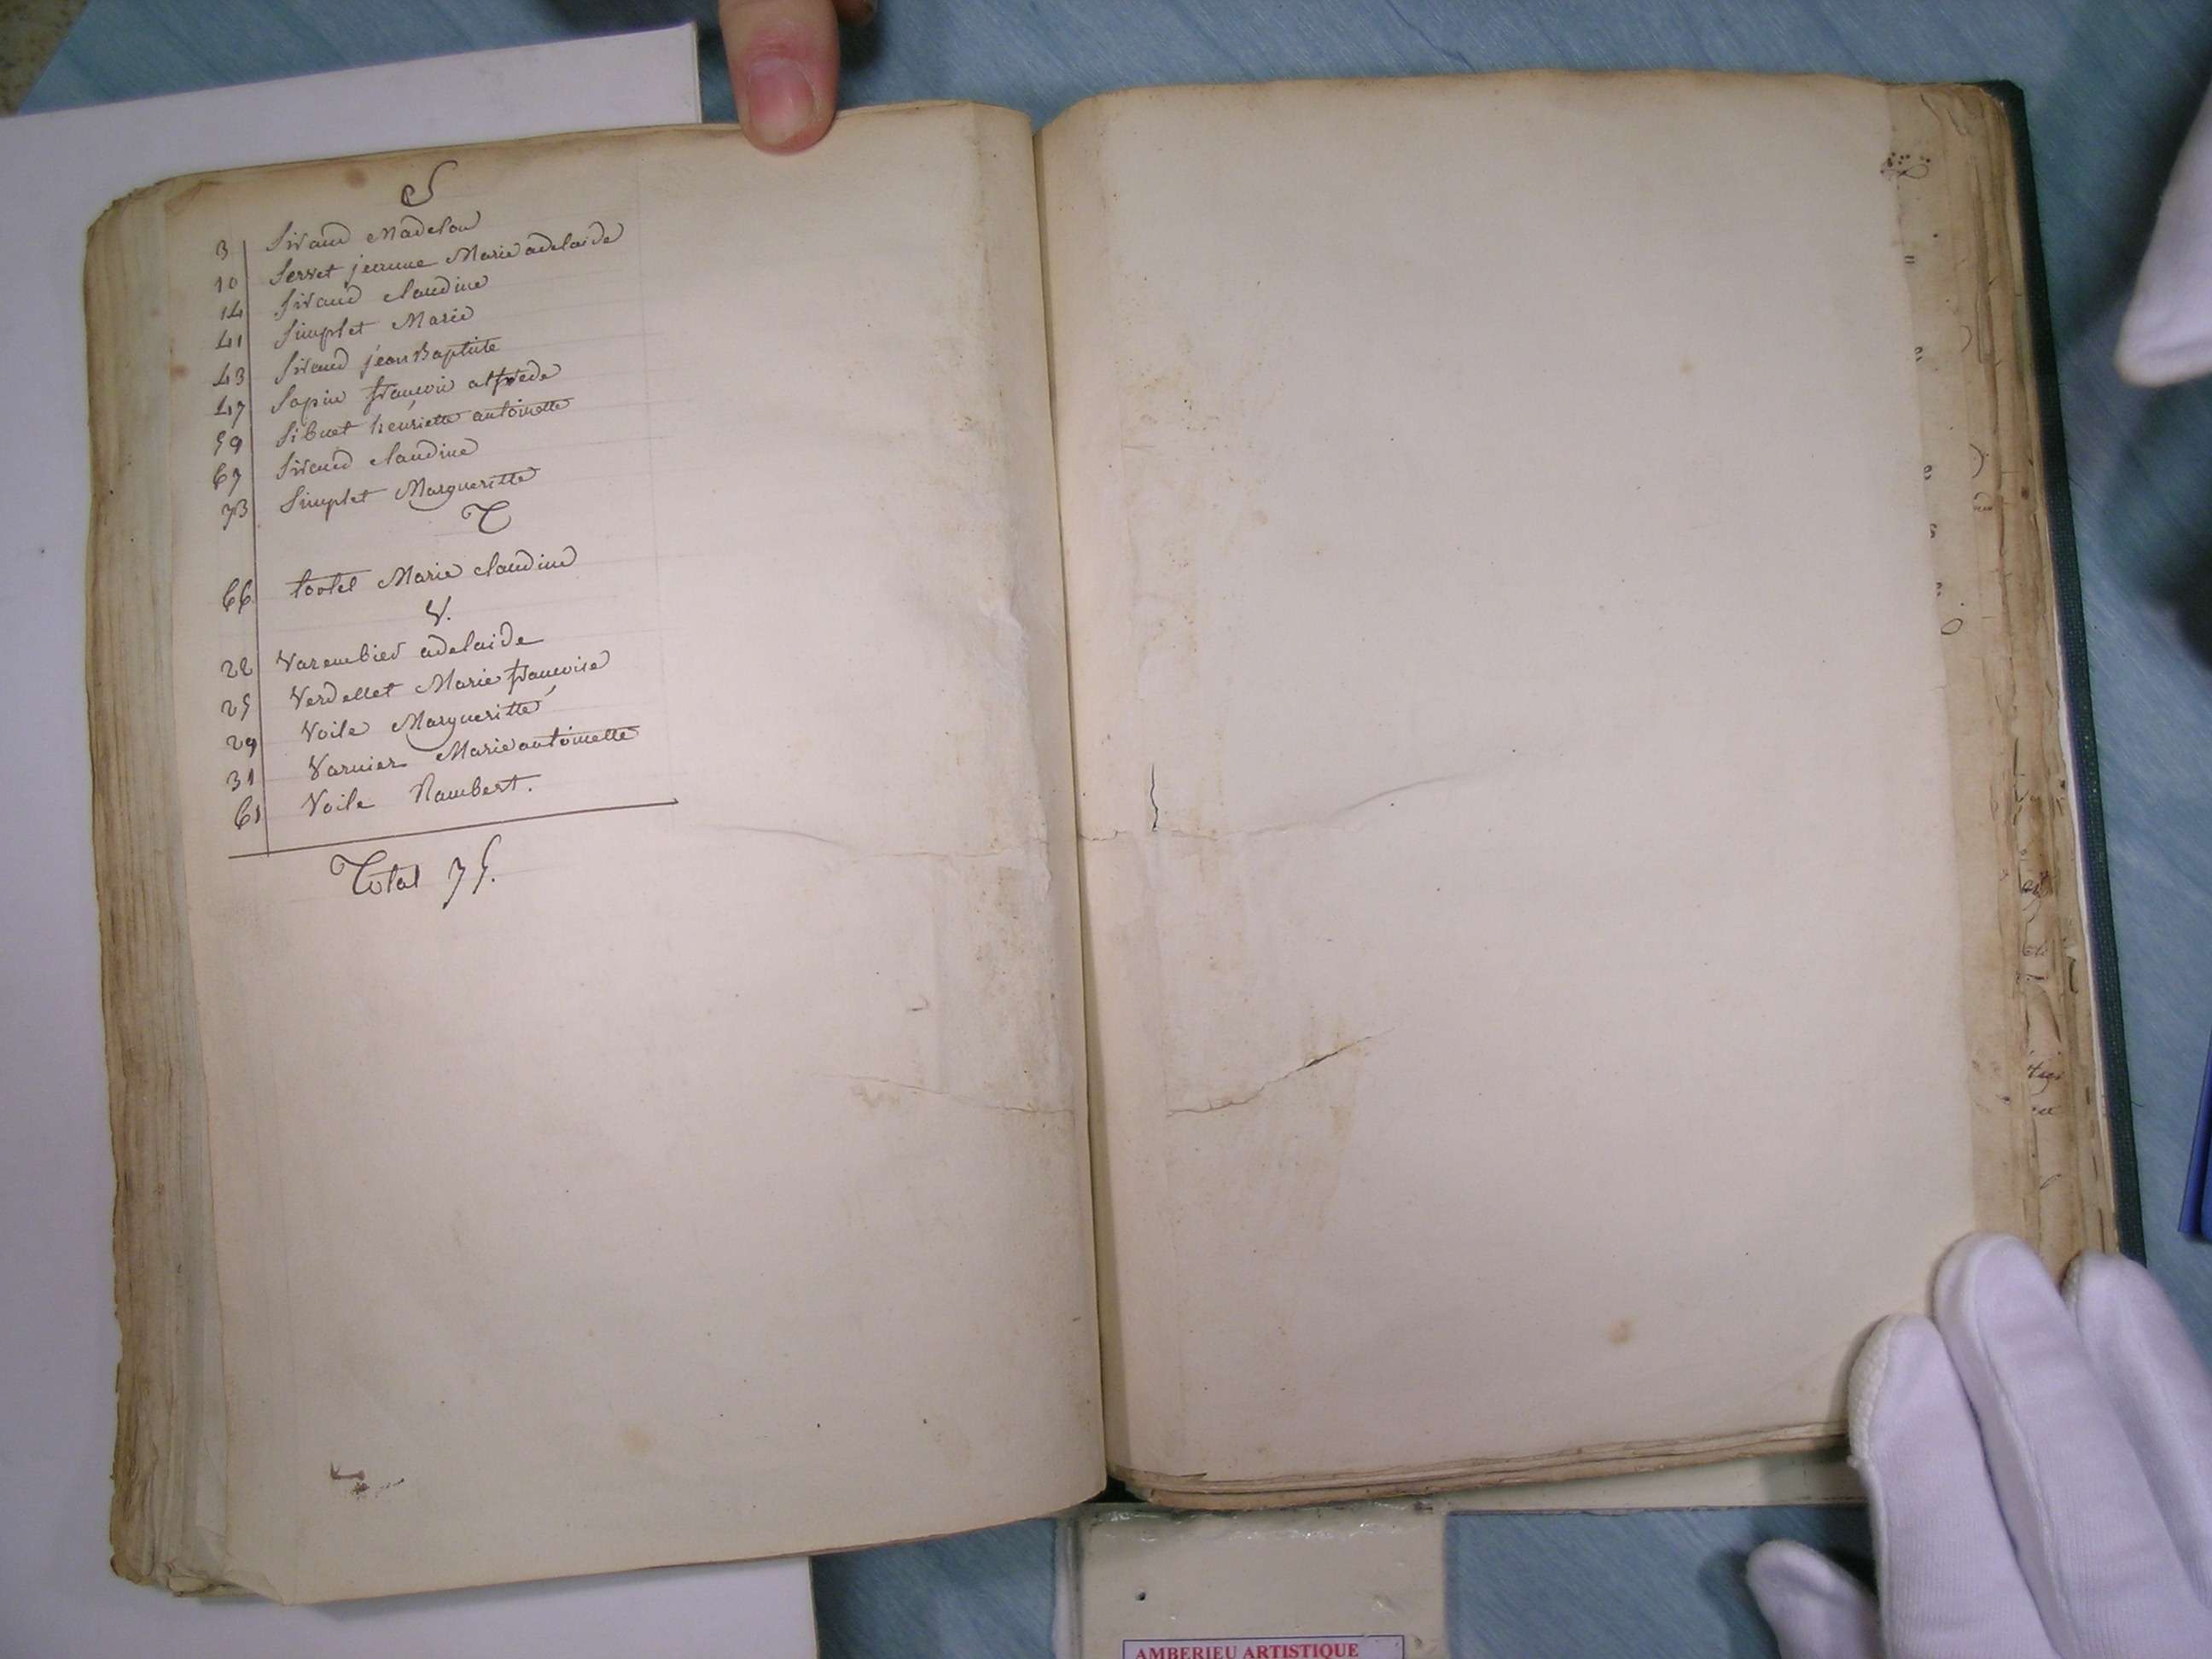 S
3 Sivaud Madelon
10 Servet jeanne Marie adelaide
14 Sivaud claudine
41 Simplet Marie
43 Sivaud jean Baptiste
47 Sapin francois alfrede
59 Sibuet henriette antoinette
67 Sivaud claudine
73 Simplet Margueritte
T
66 tortel Marie claudine
V.
22 Varembied adelaide
25 Verdellet Marie francoise
29 Voile Margueritte
31 Varnier Marie antoinette
61 Voile Rambert.
Total 75.
AMBERIEU ARTISTIQUE